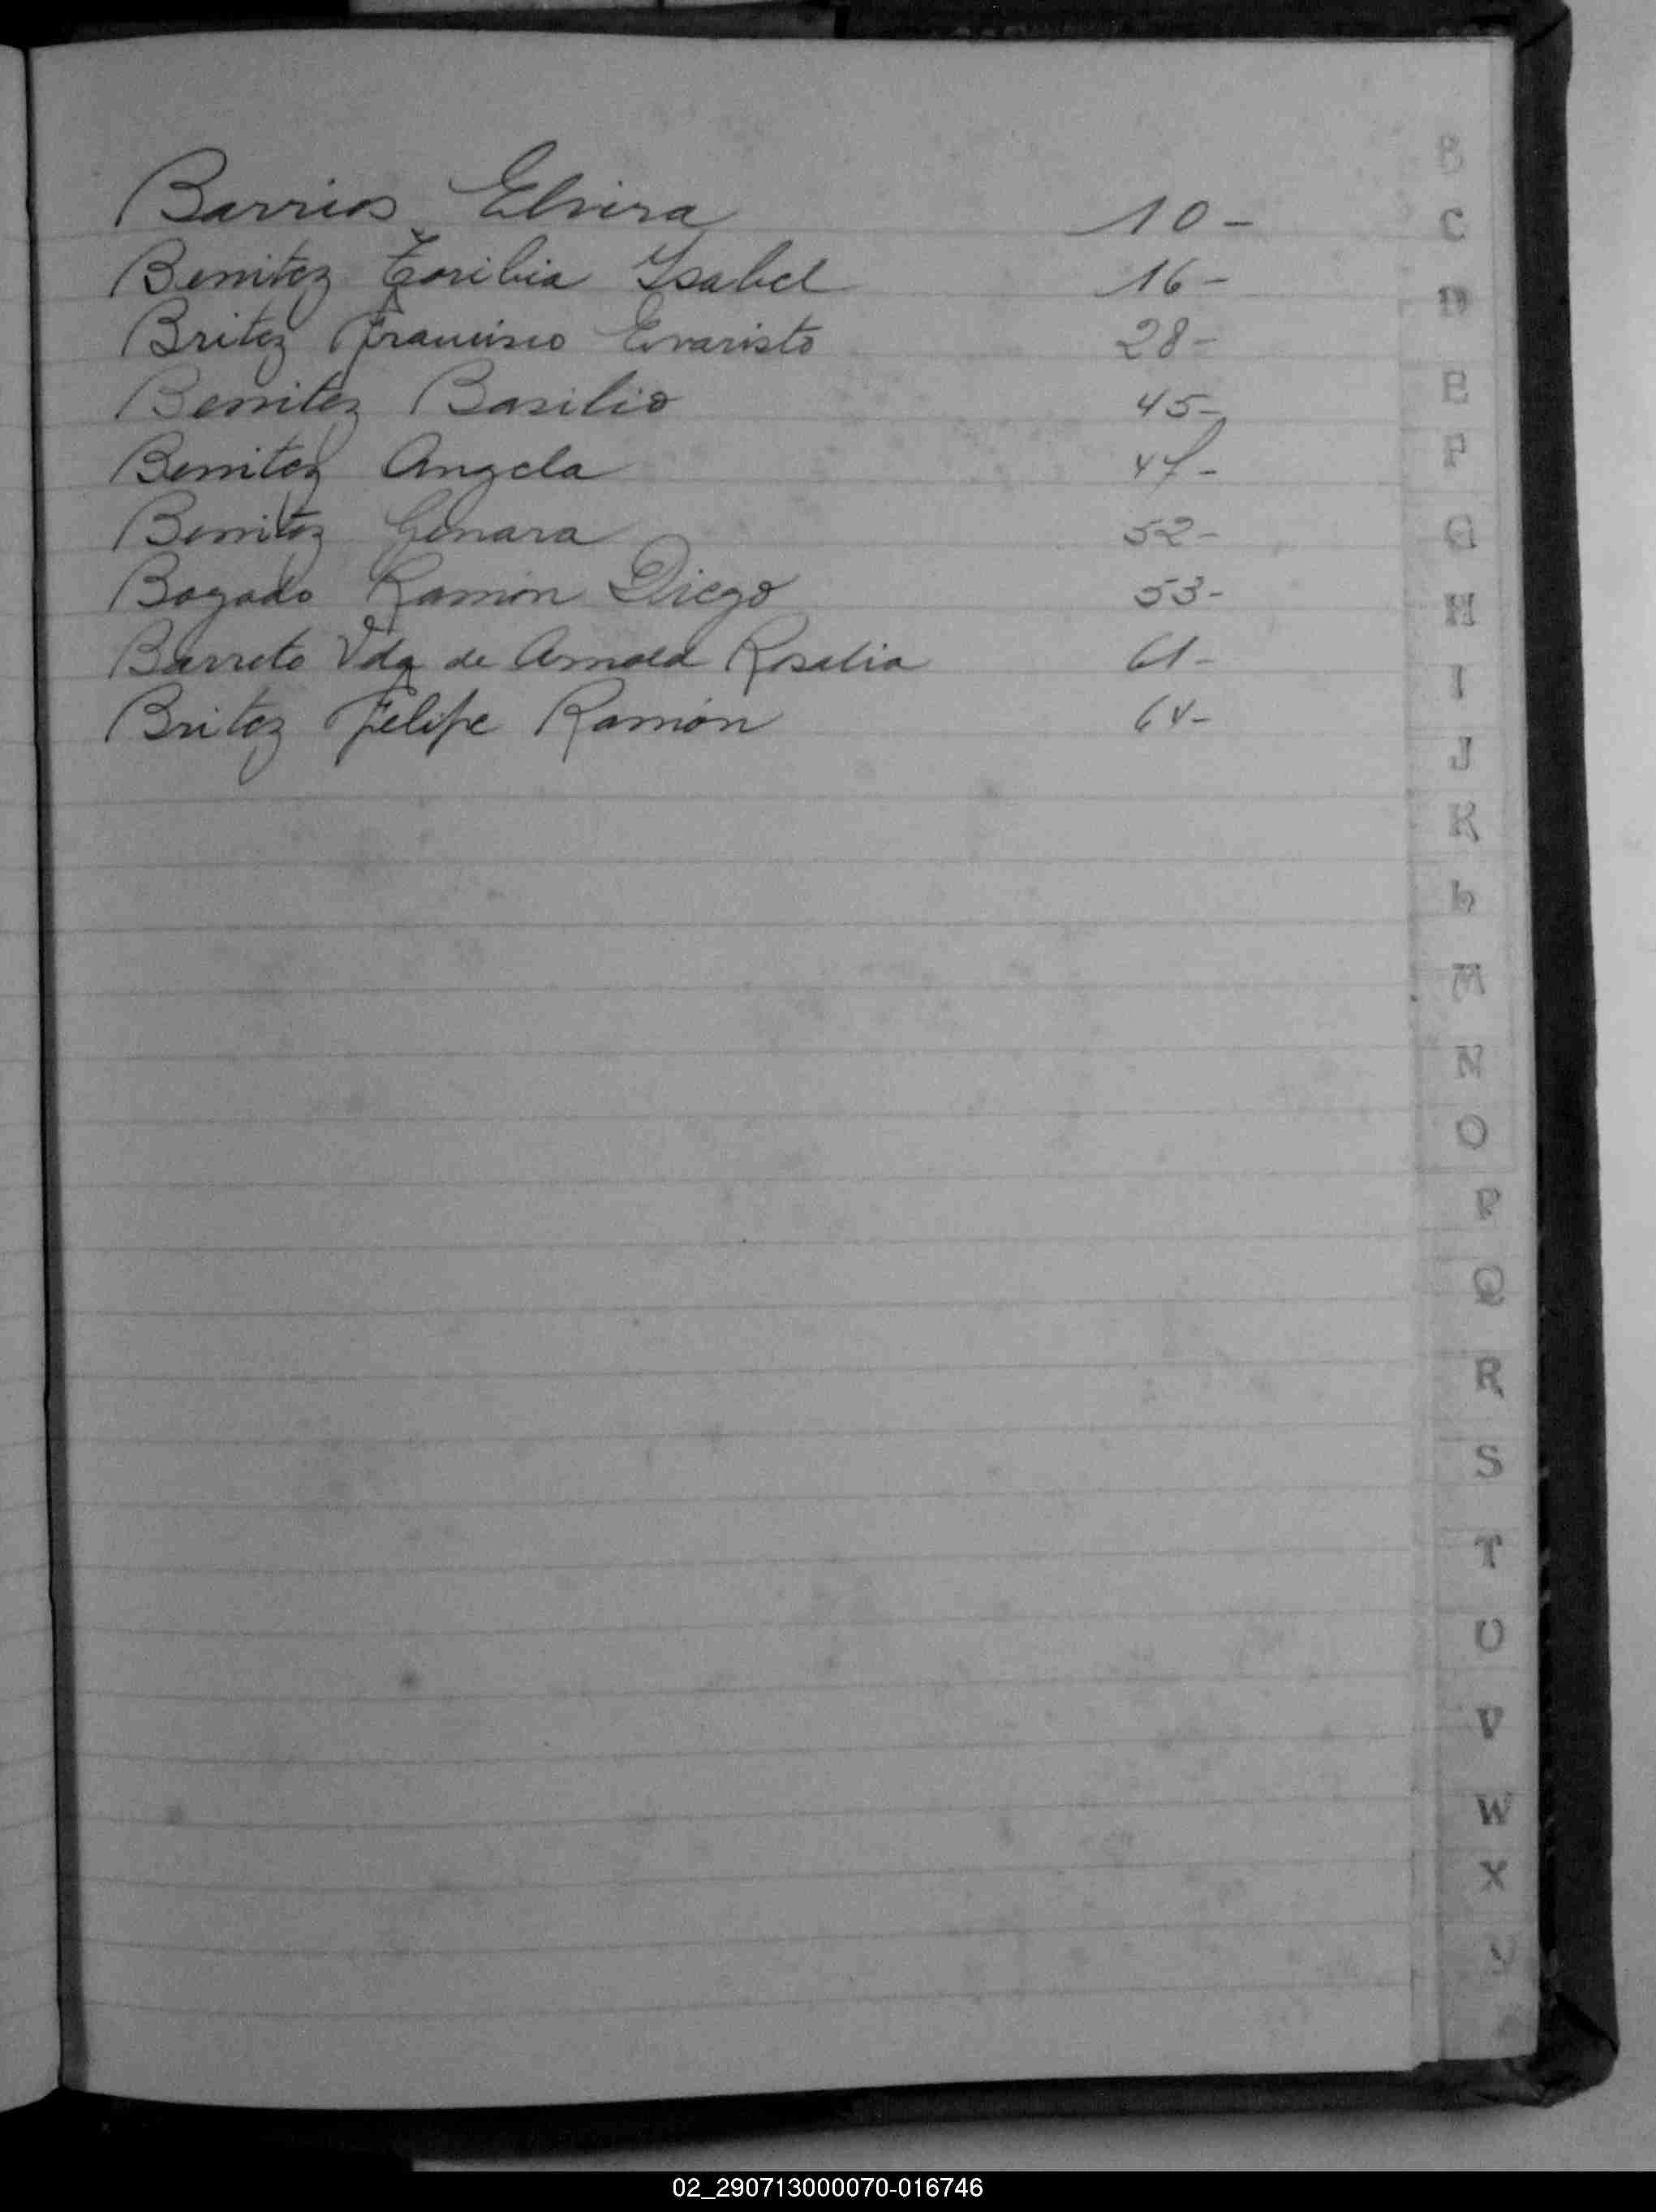 Barrios Elvira 10-
Benitez Toribia Ysabel 16-
Britez Francisco Evaristo 28-
Benitez Basilio 45-
Benitez Angela 47-
Benitez Genara 52-
Bogado Ramón Diego 53-
Barreto Vda de Rosalia 61-
Britez Felipe Ramón 64-
B
C
D
E
F
G
H
I
J
K
L
M
N
O
P
Q
R
S
T
U
V
W
X
Y
02_290713000070-016746